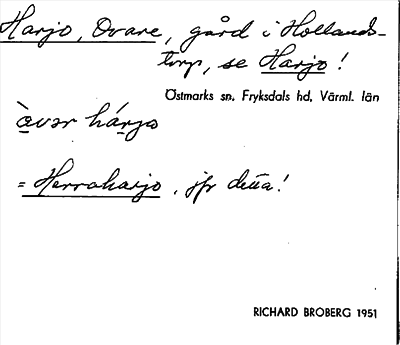 Harjo, Ovare, gård i Hollands-
torp, se Harjo!
Östmarks sn. Fryksdals hd. Värml. län
òvər hárjo
= Herraharjo, jfr detta!
RICHARD BROBERG 1951